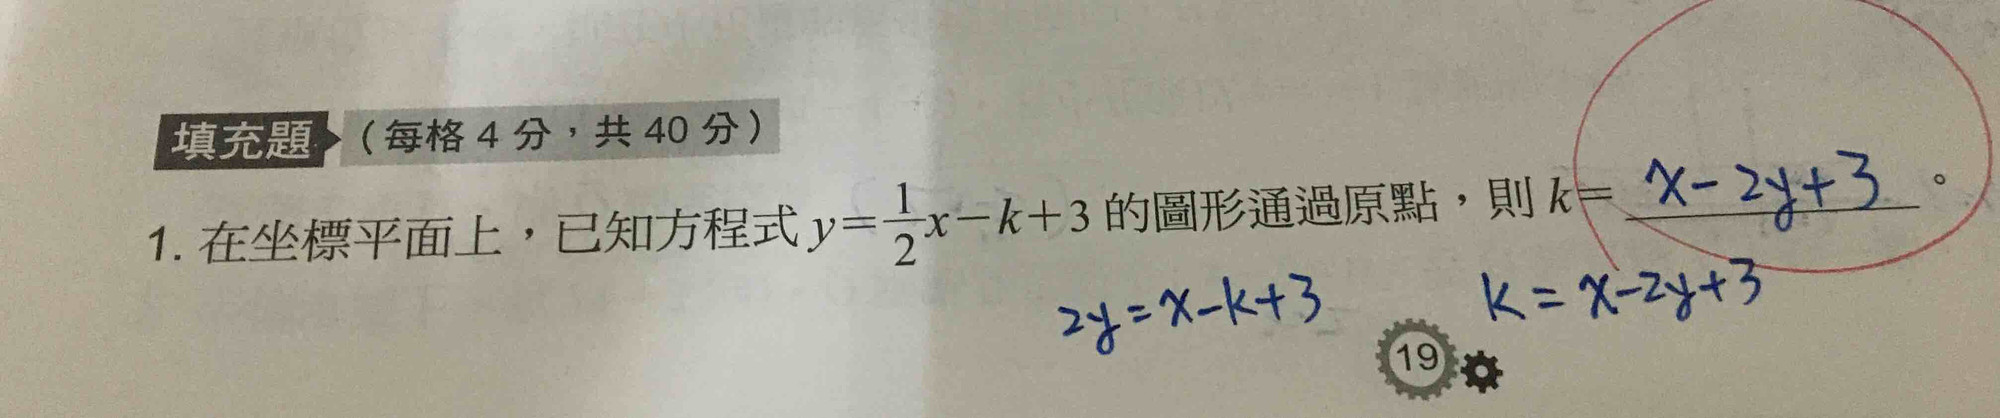 填充題（每格 4 分，共 40 分）
1. 在坐標平面上，已知方程式 y=1/2x−k+3 的圖形通過原點，則 k= x-2y+3 。
2y=x-k+3
k=x-2y+3
19